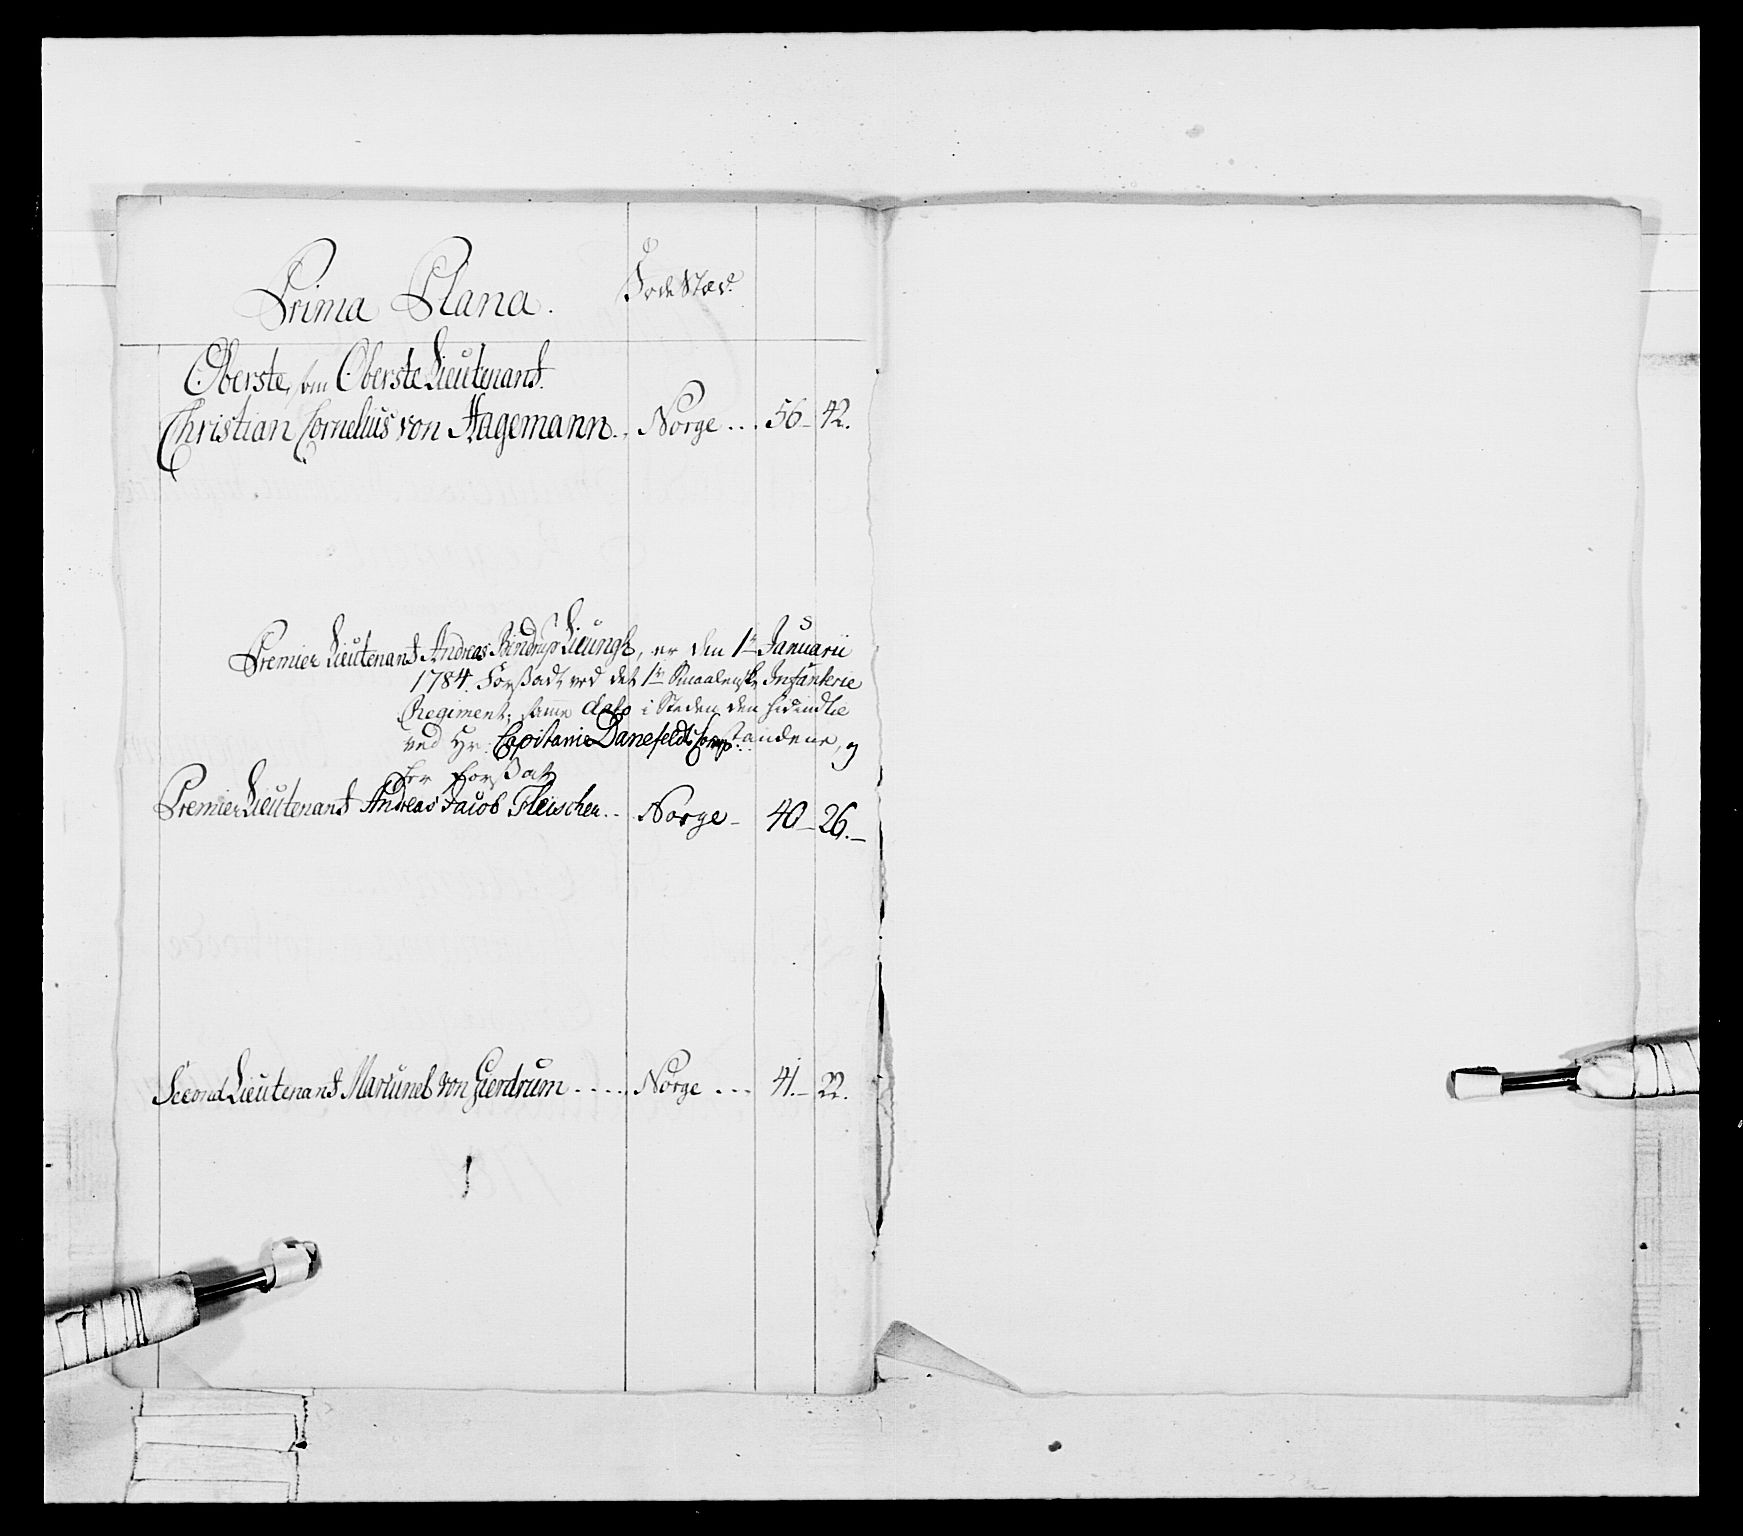 Prima Plana. Føde Stæd.
Oberste, som Oberste Lieutenant.
Christian Cornelius von Hagemann.. Norge... 56- 42.
Premier Lieutenant Andreas Bindrup Lieungh, er den 1te Januarii
1784. Forsadt ved det 1te Smaalenske Infanterie
Regiment; samme dato i Steden den hidindtil
ved Hr: Capitaine Danefeldts Comp: standene, og
her forsat
Premier Lieutenant Andreas Jacob Fleischer.. Norge- 40- 26.-
Second Lieutenant von Gierdrum..... Norge... 41.- 22.